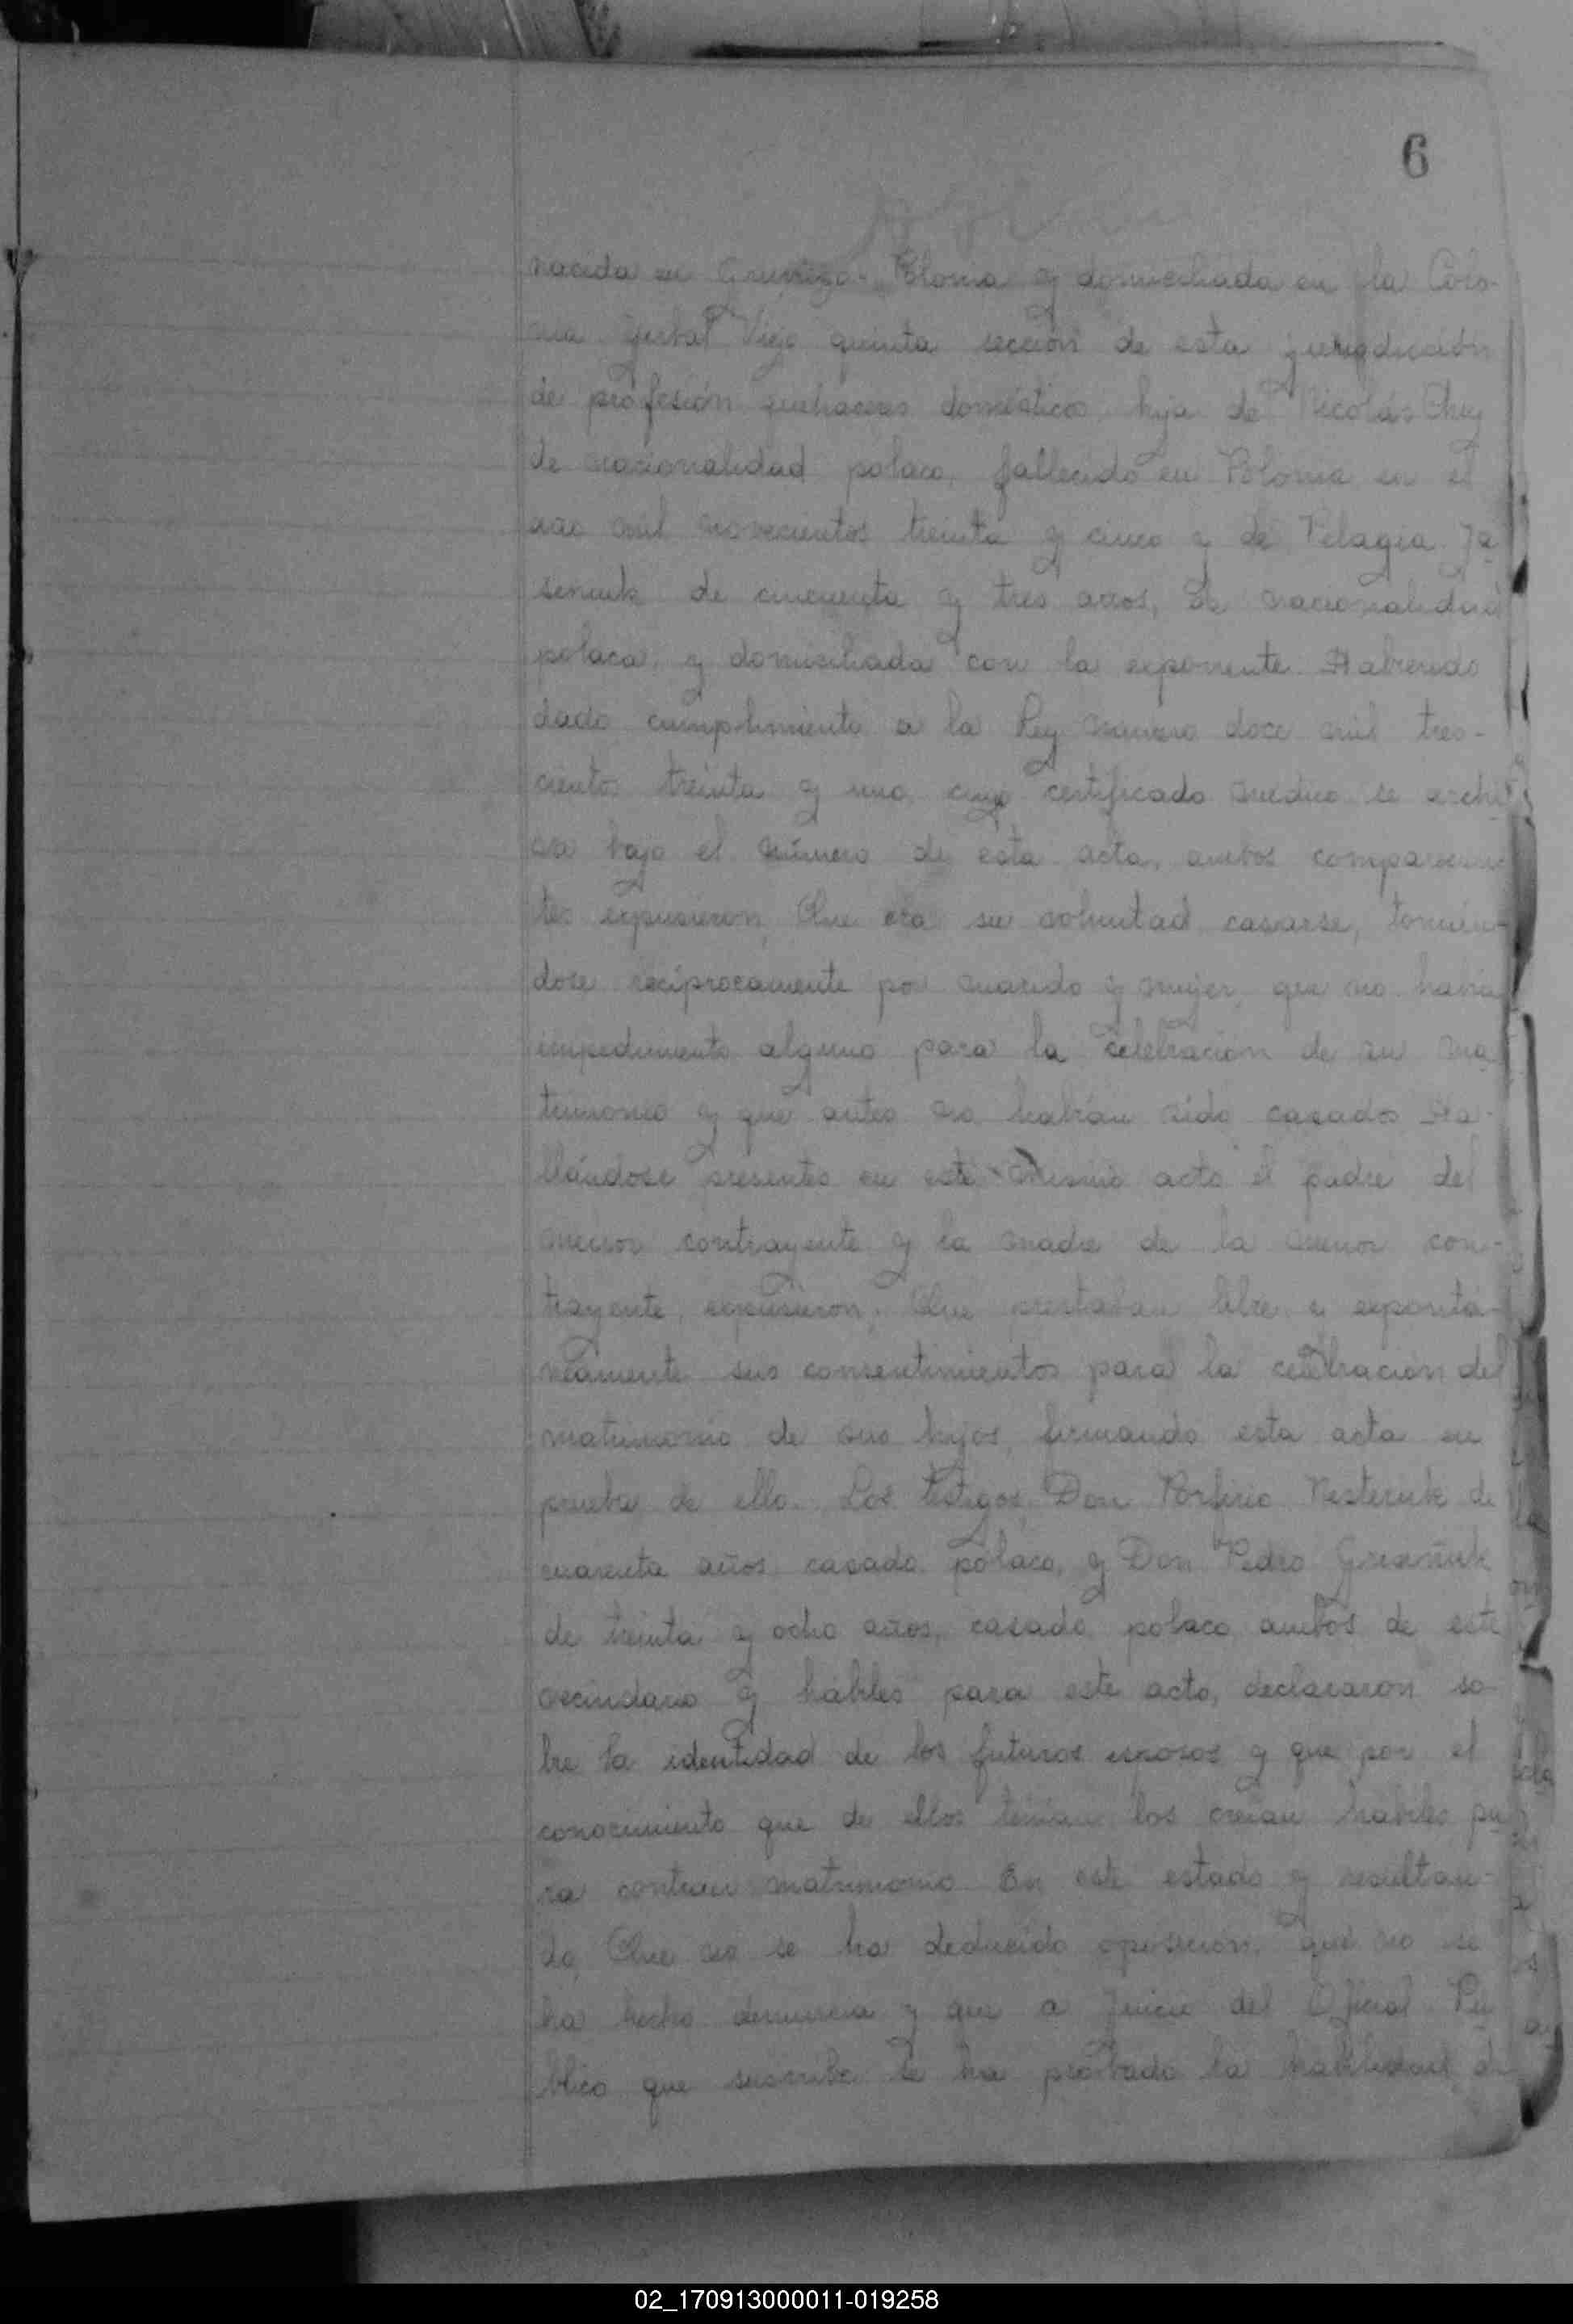 6
nacida en Polonia y domiciliada en la Colo-
nia Yerbal Viejo quinta sección de esta jurisdicción
de profesión quehaceres domésticos, hija de Nicolás Chuy
de nacionalidad polaco, fallecido en Polonia en el
año mil novecientos treinta y cinco y de Pelagia Ja
seniuk de cincuenta y tres años, de nacionalidad
polaca, y domiciliada con la exponente. Habiendo
dado cumplimiento a la Ley número doce mil tres-
cientos treinta y uno, cuyo certificado médico se archi
va bajo el número de esta acta, ambos comparecien
tes expusieron, Que era su voluntad casarse, tomán-
dose recíprocamente por marido y mujer, que no había
impedimento alguno para la celebración de su ma
trimonio y que antes no habían sido casados Ha-
llándose presentes en este mismo acto el padre del
menor contrayente y la madre de la menor con-
trayente, expusieron; Que prestaban libre y esponta-
neamente sus consentimientos para la celebración del
matrimonio de sus hijos, firmando esta acta en
prueba de ello. Los testigos, Don Porfirio Nesteruk de
cuarenta años, casado, polaco, y Don Pedro
de treinta y ocho años, casado, polaco, ambos de este
vecindario y hábiles para este acto, declararon so-
bre la identidad de los futuros esposos y que por el
conocimiento que de ellos tenían los creían hábiles pa
ra contraer matrimonio. En este estado y resultan-
do, Que no se ha deducido oposición, que no se
ha hecho denuncia y que a juicio del Oficial Pú
blico que suscribe se ha probado la habilidad de
02_170913000011-019258